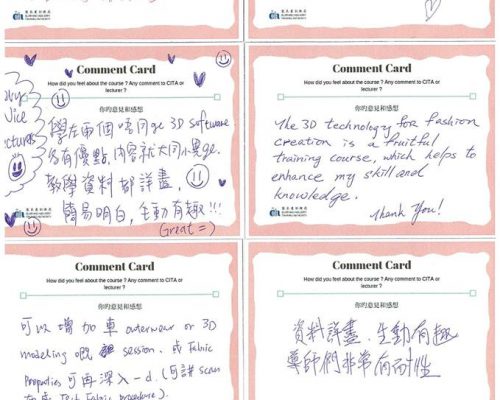 Comment Card
How did you feel about the course ? Any comment to CITA or
lecturer ?
你的意見和感想
Nice
學左兩個唔同ge 3D software
各有優點,內容就大同小異ge.
教學資料都詳盡,
簡易明白,生動有趣!!!
Great =)
Comment Card
How did you feel about the course ? Any comment to CITA or
lecturer ?
你的意見和感想
The 3D technology for fashion
creation is a fruitful
training course, which helps to
enhance my skill and
knowledge.
Thank You!
Comment Card
How did you feel about the course ? Any comment to CITA or
lecturer ?
你的意見和感想
可以增加車 outerwear or 3D
modeling 嘅 session. 或 Fabric
Properties 可再深入一d. (可講 scan
Test Fabric procedure).
Comment Card
How did you feel about the course ? Any comment to CITA or
lecturer ?
你的意見和感想
資料詳盡.生動有趣
導師們非常有耐性